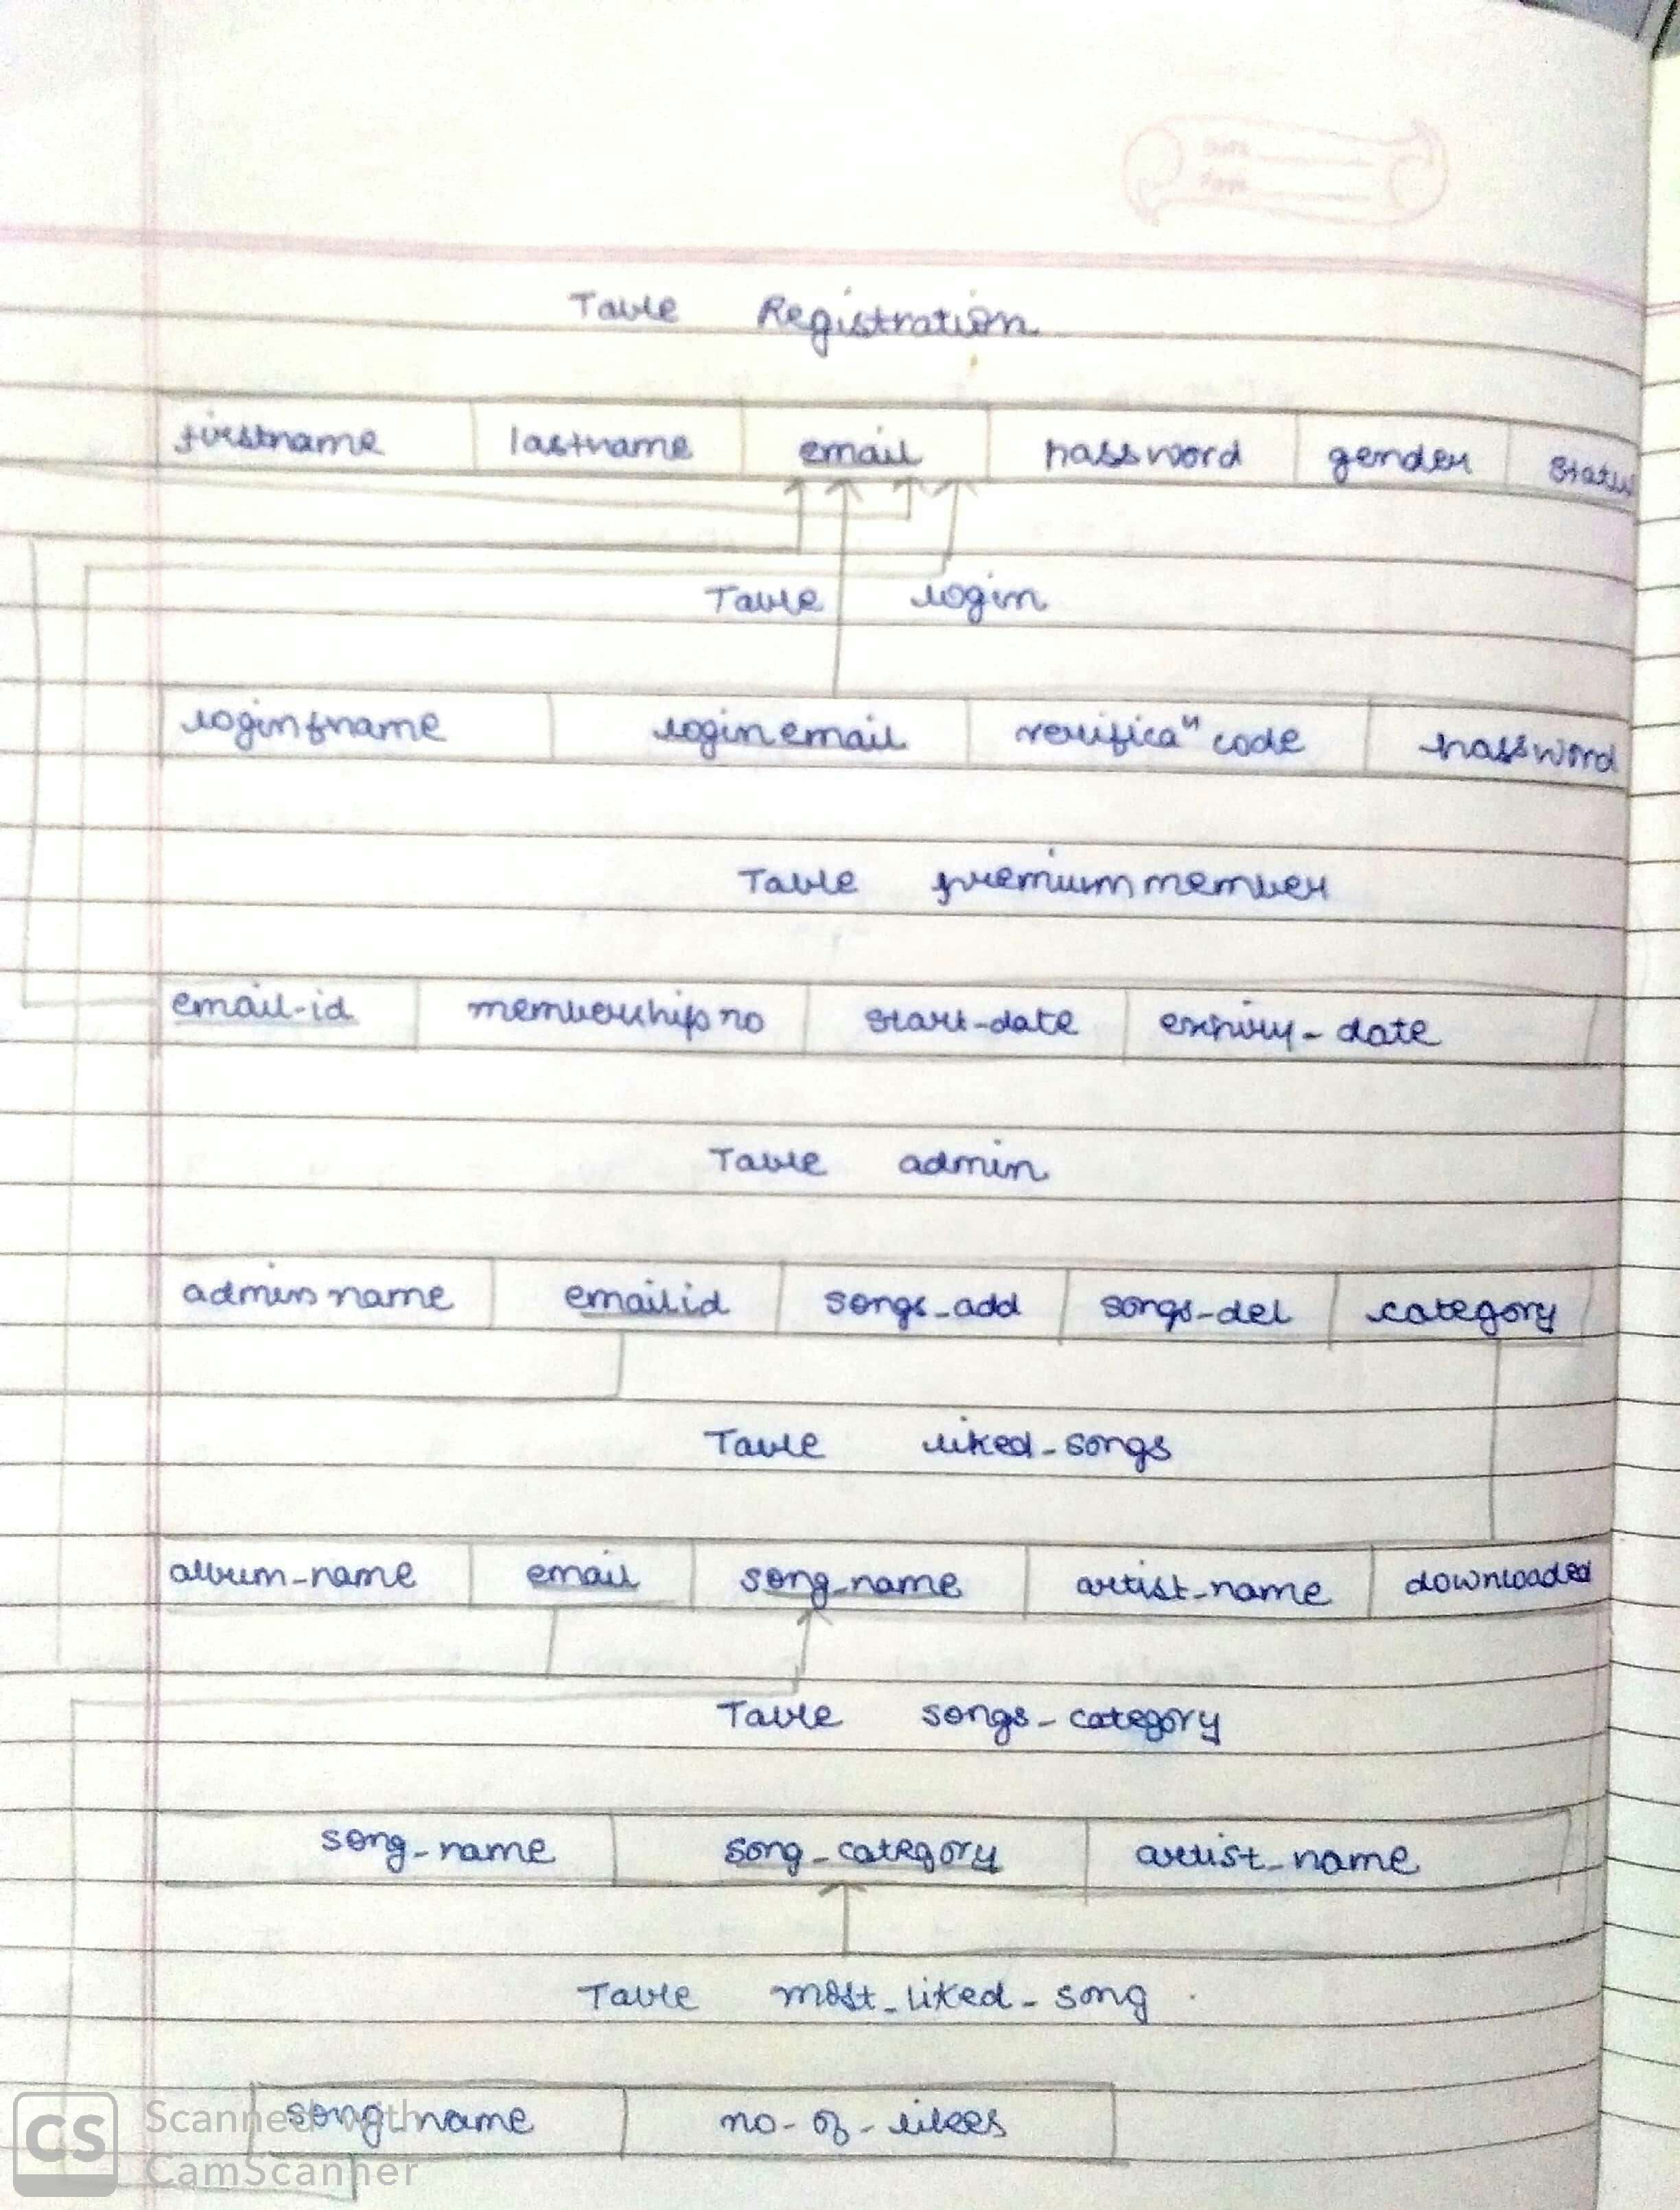 Table Registration
firstname lastname email password gender Status
Table login
loginfname loginemail verificaⁿ code password
Table premiummember
email-id membershipno start-date expiry-date
Table admin
adminname emailid songs_add songs-del category
Table liked-songs
album-name email song_name artist_name downloaded
Table songs-category
song_name song_category artist_name
Table most_liked_song
song name no-of-likes
CS Scanned with
CamScanner